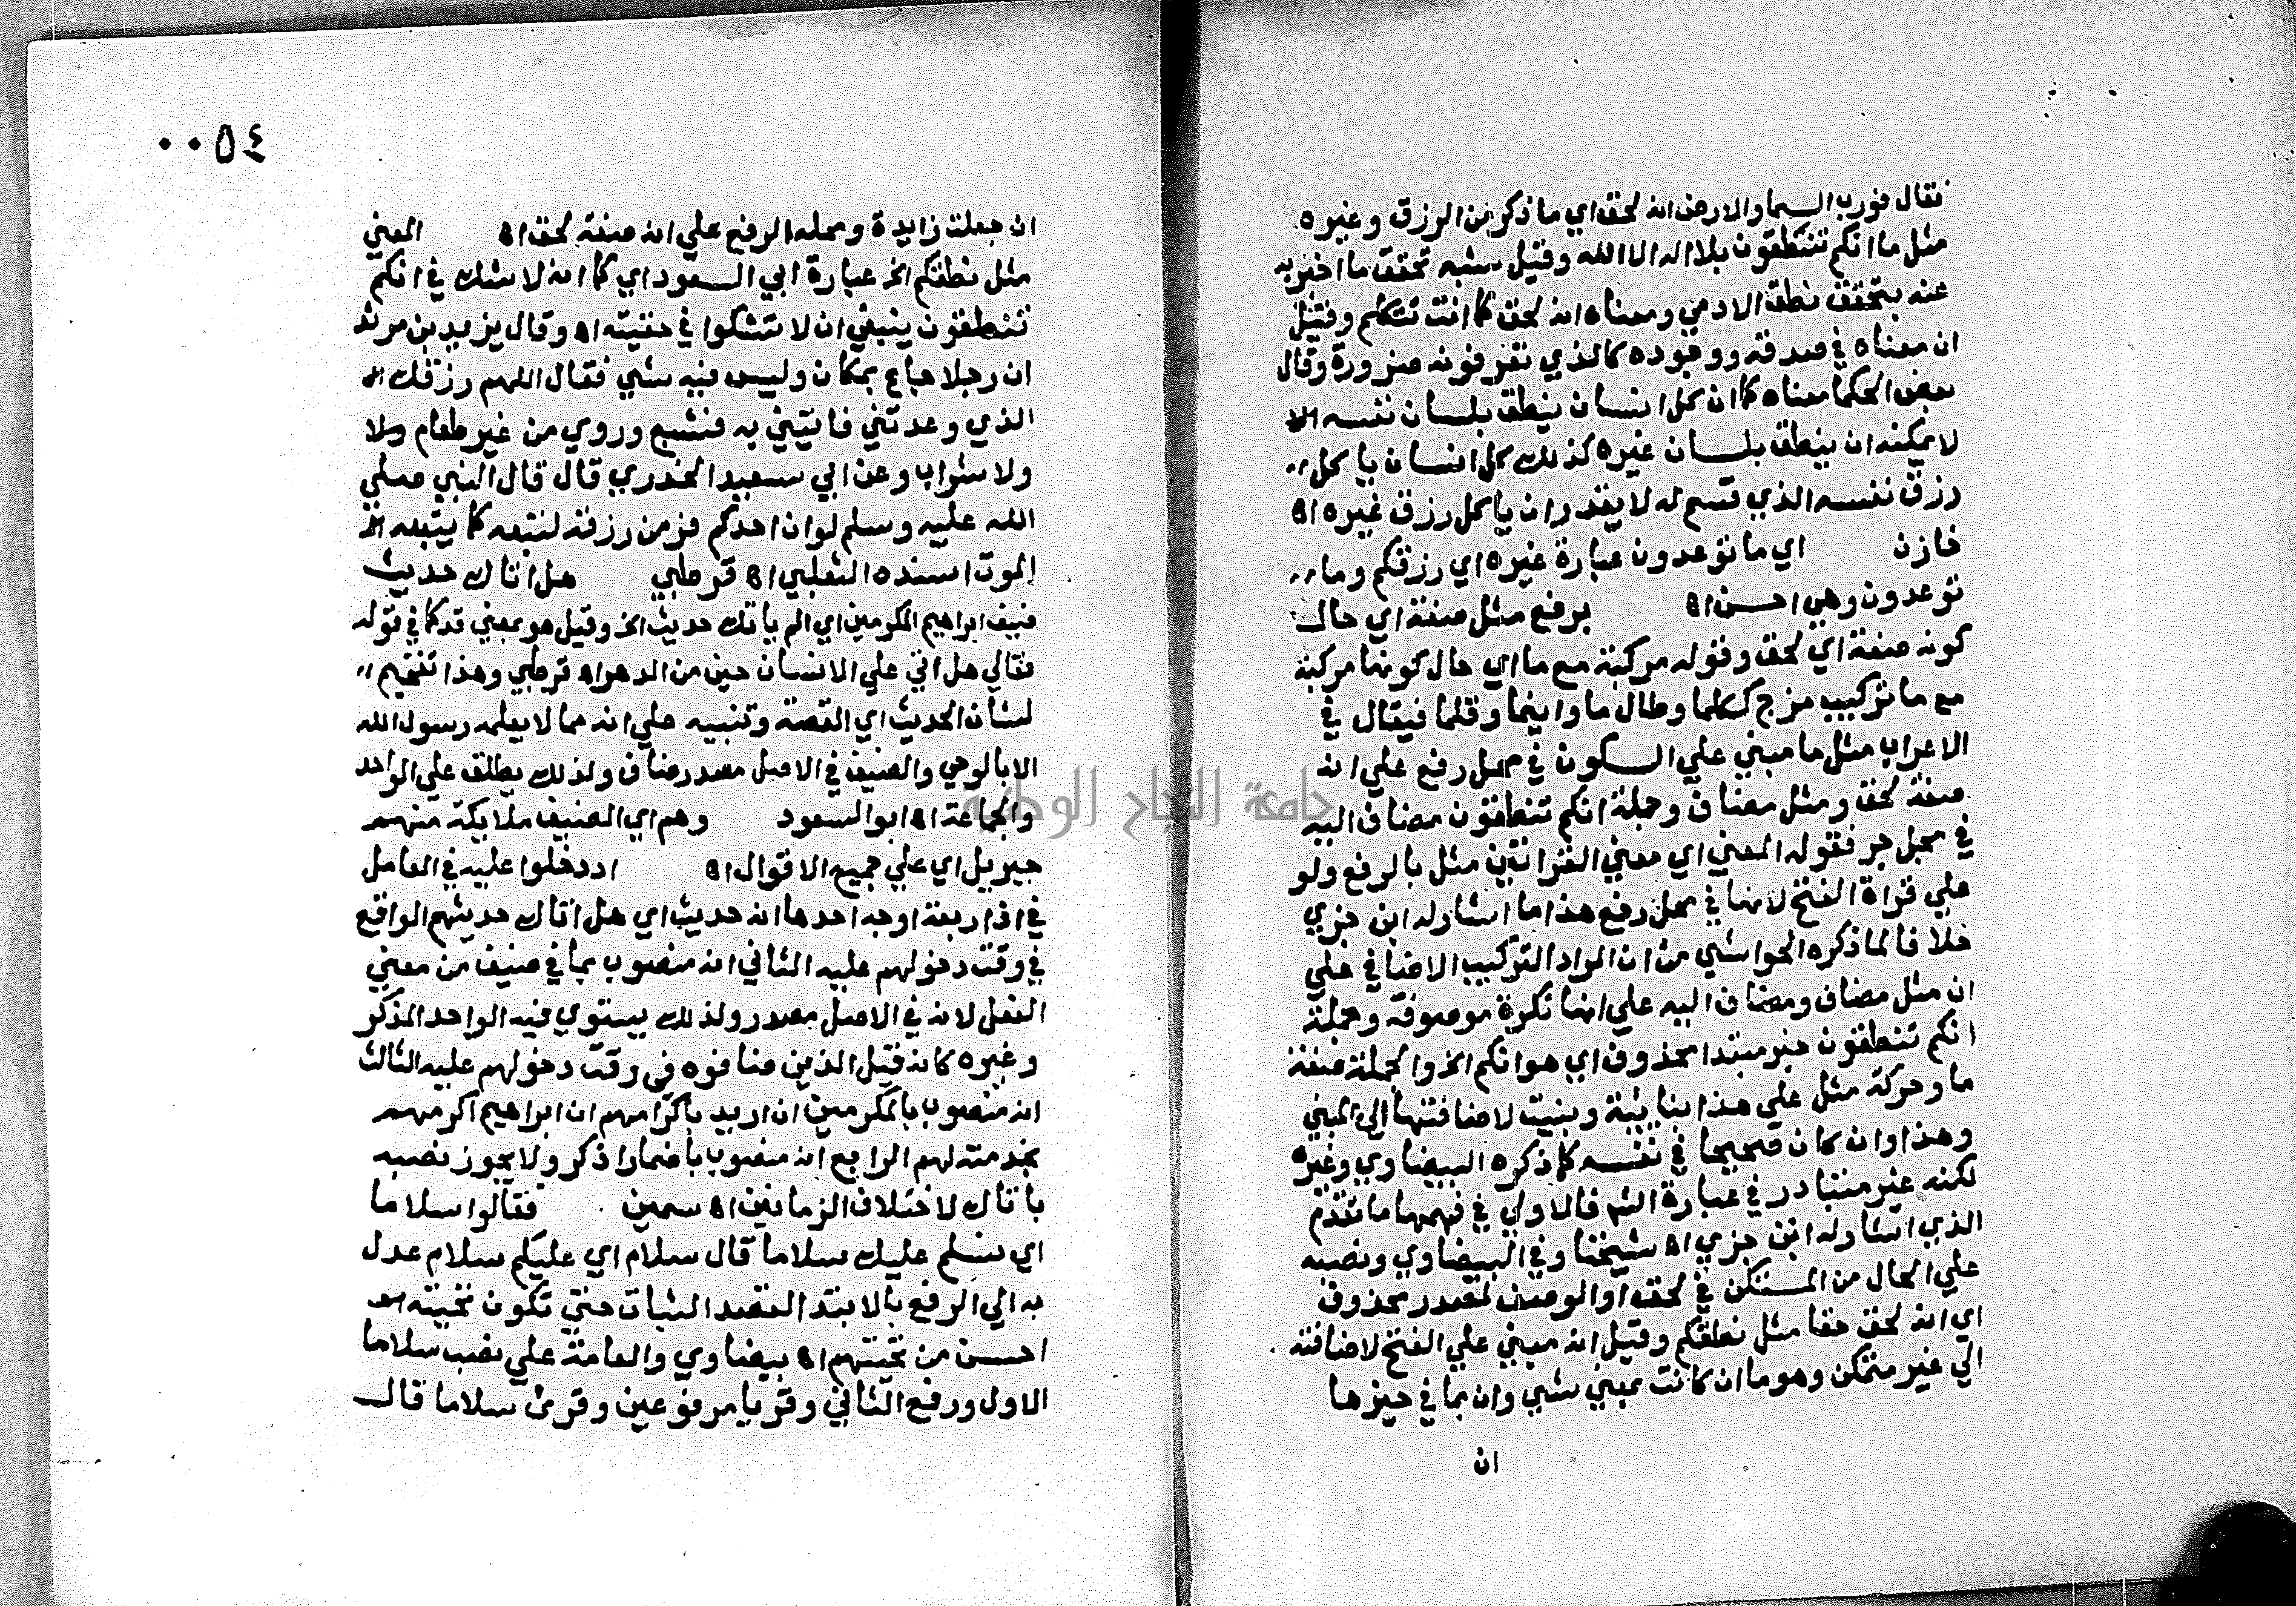 فقال فورب السما والارض انه لحق اي ما ذكر من الرزق وغيره
مثل ما انكم تنطقون بلا اله الا الله وقيل شبه تحقق ما اخبر به
عنه بتحقق نطق الادمي ومعناه انه لحق كما انت تتكلم وقيل
ان معناه في صدقه ووجوده كالذي تعرفونه ضرورة وقال
بعض الحكما معناه كما ان كل انسان ينطق بلسان نفسه
لا يمكنه ان ينطق بلسان غيره كذلك كل انسان ياكل
رزق نفسه الذي قسم له لا يقدر ان ياكل رزق غيره اه
خازن اي ما توعدون عبارة غيره اي رزقكم وما
توعدون وهي احسن اه برفع مثل صفة اي حال
كونه صفة اي لحق وقوله مركبة مع ما اي حال كونها مركبة
مع ما تركيب مزج ككلما وطال ما واينما وقلما فيقال في
الاعراب مثل ما مبني علي السكون في محل رفع علي انه
صفة لحق ومثل مضاف وجملة انكم تنطقون مضاف اليه
في محل جر فقوله المعني اي معني القراتين مثل بالرفع ولو
علي قراة الفتح لانها في محل رفع هذا ما اشار له ابن جزي
خلافا لما ذكره الحواشي من ان المراد التركيب الاضافي علي
ان مثل مضاف ومضاف اليه علي انها نكرة موصوفة وجملة
انكم تنطقون خبر مبتدا محذوف اي هو انكم الخ والجملة صفة
ما وحركة مثل علي هذا بنايية وبنيت لاضافتها الي المبني
وهذا وان كان صحيحا في نفسه كما ذكره البيضاوي وغيره
لكنه غير متبادر في عبارة الشم فالاولي في فهمها ما تقدم
الذي اشار له ابن جزي اه شيخنا وفي البيضاوي ونصبه
علي الحال من المستكن في لحق او الوصف لمصدر محذوف
اي انه لحق حقا مثل نطقكم وقيل انه مبني علي الفتح لاضافته
الي غير متمكن وهو ما ان كانت بمعني شي وان بما في حيزها
ان
٠٠٥٤
ان جعلت زايدة ومحله الرفع علي انه صفة لحق اه المعني
مثل نطقكم الخ عبارة ابي السعود اي كما انه لا شك في انكم
تنطقون ينبغي ان لا تشكوا في حقيته اه وقال يزيد بن مرثد
ان رجلا جاع بمكان وليس فيه شي فقال اللهم رزقك
الذي وعدتني فاتيني به فشبع وروي من غير طعام ولا
ولا شراب وعن ابي سعيد الخدري قال قال النبي صلي
الله عليه وسلم لو ان احدكم فر من رزقه لتبعه كما يتبعه
الموت اسنده الثعلبي اه قرطبي هل اتاك حديث
ضيف ابراهيم المكرمين اي الم ياتك حديث الخ وقيل هو بمعني قد كما في قوله
تعالي هل اتي علي الانسان حين من الدهر اه قرطبي وهذا تفخيم
لشان الحديث اي القصة وتنبيه علي انه مما لا يعلمه رسول الله
الا بالوحي والضيف في الاصل مصدر ضاف ولذلك يطلق علي الواحد
والجماعة اه ابو السعود وهم اي الضيف ملايكة منهم
جبريل اي علي جميع الاقوال اه اذ دخلوا عليه في العامل
في اذ اربعة اوجه احدها انه حديث اي هل اتاك حديثهم الواقع
في وقت دخولهم عليه الثاني انه منصوب بما في ضيف من معني
الفعل لانه في الاصل مصدر ولذلك يستوي فيه الواحد المذكر
وغيره كانه قيل الذين ضافوه في وقت دخولهم عليه الثالث
انه منصوب بالمكرمين ان اريد باكرامهم ان ابراهيم اكرمهم
بخدمته لهم الرابع انه منصوب باضمار اذكر ولا يجوز نصبه
باتاك لاختلاف الزمانين اه سمين فقالوا سلاما
اي نسلم عليك سلاما قال سلام اي عليكم سلام عدل
به الي الرفع بالابتدا لقصد الثبات حتي تكون تحيته
احسن من تحيتهم اه بيضاوي والعامة علي نصب سلاما
الاول ورفع الثاني وقريا مرفوعين وقرئ سلاما قال
جامعة النجاح الوطنية